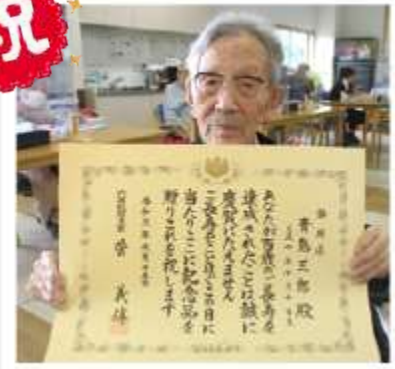 祝
青島三郎殿
あなたが百歳のご長寿を
達成されたことは誠に
慶賀にたえません
ご長寿をことほぐこの日に
当たりここに記念品を
贈りこれを祝します
内閣総理大臣 菅 義偉